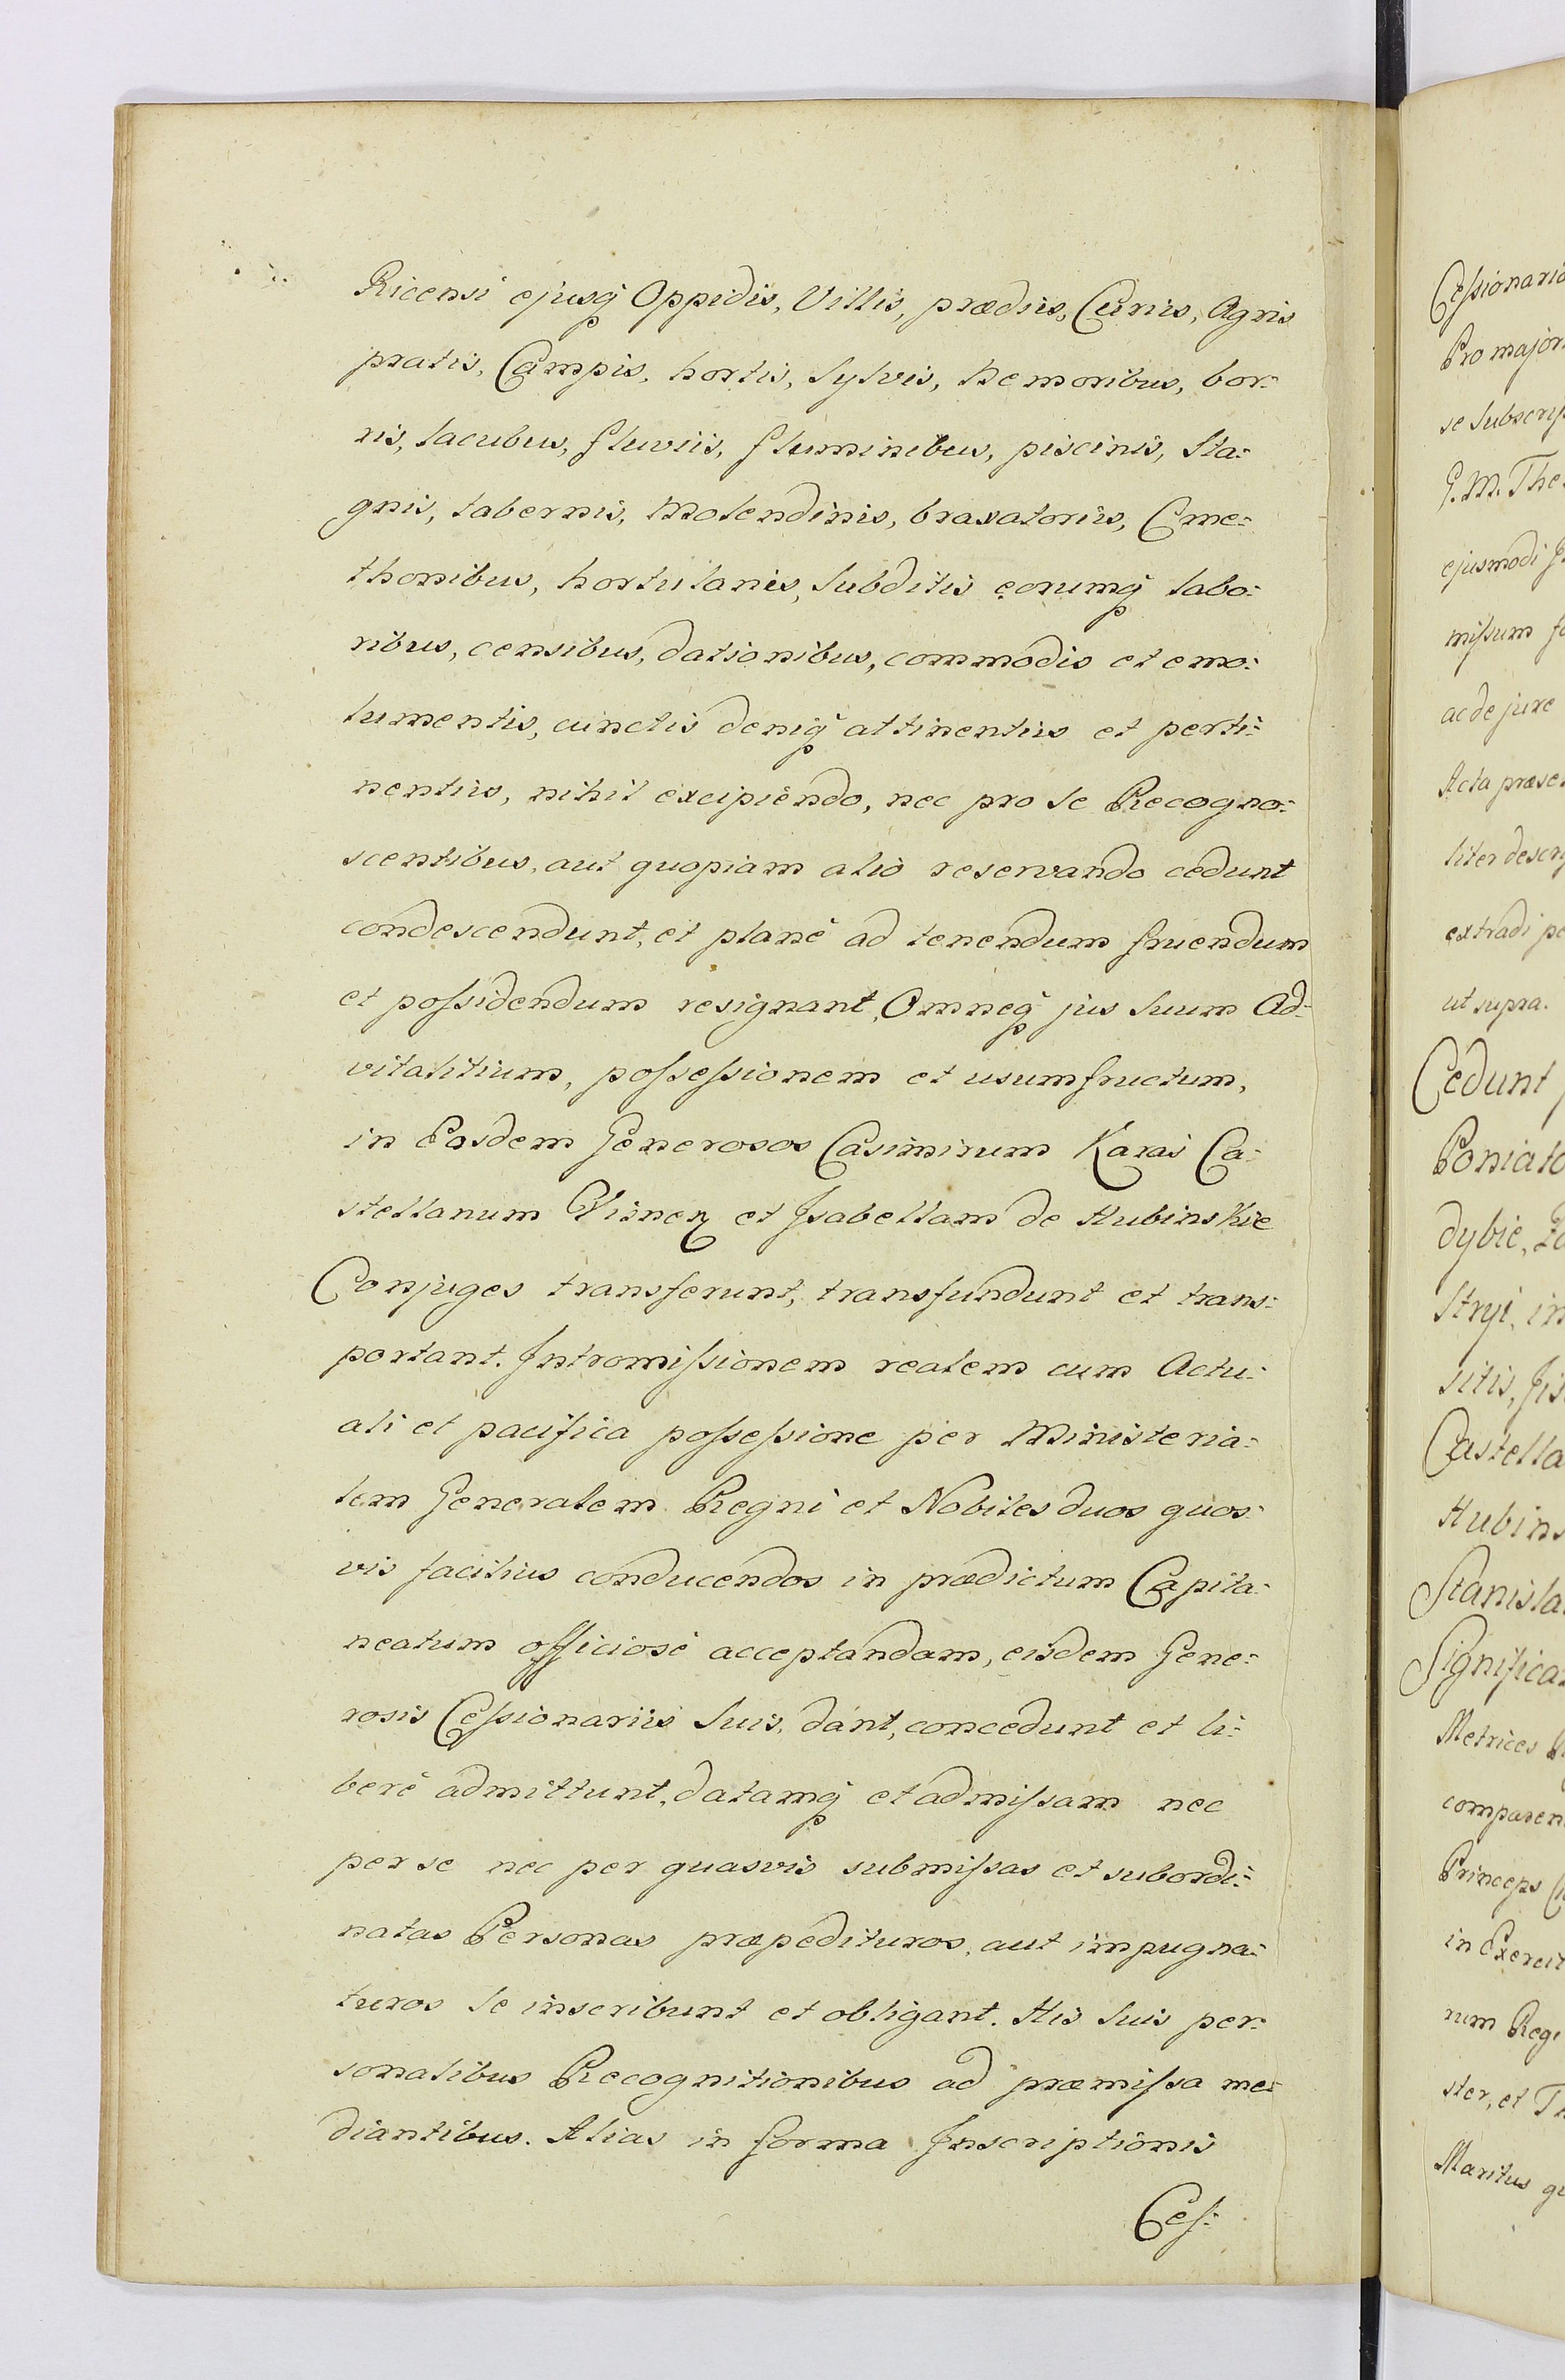 Ricensi ejusq̃ Oppidis, Villis, prædiis, Curiis, Agris
pratis, Campis, hortis, Sylvis, Nemoribus, bor-
ris, lacubus, fluviis, fluminibus, piscinis, Sta-
gnis, tabernis, Molendinis, braxatoriis, Cme-
thonibus, hortulanis, Subditis eorumq̃ labo-
ribus, censibus, dationibus, commodis et emo-
lumentis, cunctis deniq̃ attinentiis et perti-
nentiis, nihil excipiendo, nec pro se Recogno-
scentibus, aut quopiam alio reservando cedunt
condescendunt, et planè ad tenendum fruendum
et poſsidendum resignant, Omneq̃ jus Suum Ad-
vitalitium, poſseſsionem et usumfructum,
in Eosdem Generosos Casimirum Karaś Ca-
stellanum Visnen et Isabellam de Hubinskie
Conjuges transferunt, transfundunt et trans-
portant. Intromiſsionem realem cum Actu-
ali et pacifica poſseſsione per Ministeria-
lem Generalem Regni et Nobiles duos quos-
vis facilius conducendos in prædictum Capita-
neatum officiosè acceptandam, eisdem Gene-
rosis Ceſsionariis Suis, dant, concedunt et li-
berè admittunt, datamq̃ et admiſsam nec
per se nec per quasvis submiſsas et subordi-
natas Personas præpedituros, aut impugna-
turos Se inscribunt et obligant. His Suis per-
sonalibus Recognitionibus ad præmiſsa me-
diantibus. Alias in forma Inscriptionis
Ceſ-
Ceſsionario
Pro major
se Subscrip
G. M. The
ejusmodi
miſsum
ac de jure
Acta præse
liter descri
extradi
ut supra.
Cedunt
Poniato
dybie,
Stryi, in
sitis,
Castella
Hubins
Stanisla
Significa
Metrices
comparen
Princeps
in Exercit
rum Reg
ster, et
Maritus